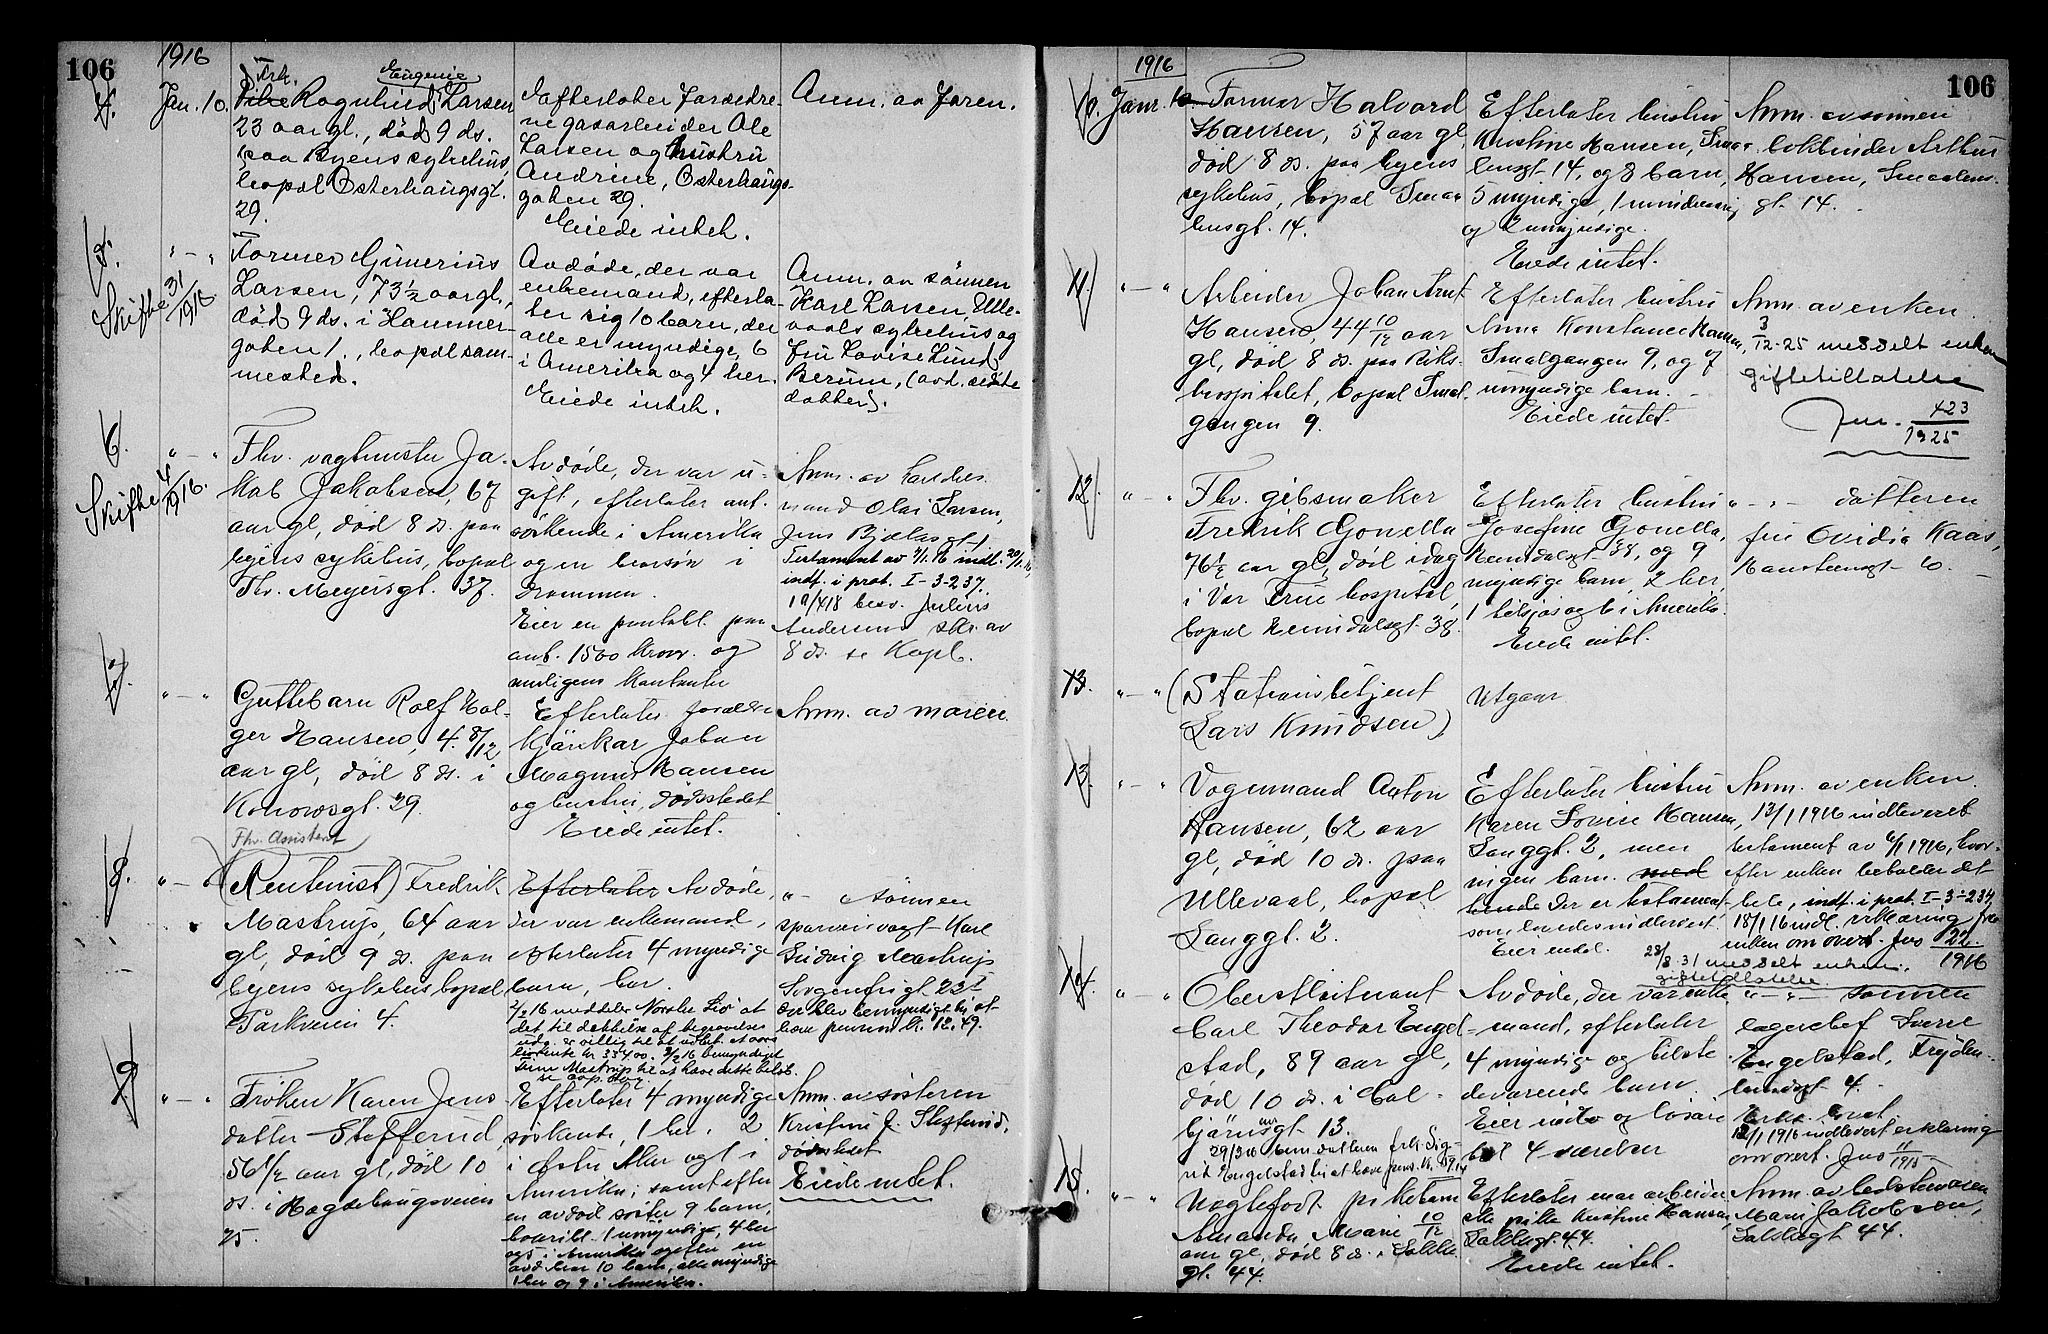 106
1916
4.
Jan. 10.
Frk. Eugenie
Pike Ragnhild Larsen
23 aar gl., död 9 ds.
paa Byens sykehus,
bopæl Österhaugsgt.
29.
Efterlater forældre-
ne gasarbeider Ole
Larsen og hustru
Andrine, Österhaugs-
gaten 29.
Eiede intet.
Anm. av faren.
5.
" - "
Skifte 31/1916
Former Gunerius
Larsen, 73 1/2 aar gl.,
död 9 ds. i Hammer-
gaten 1., bopæl sam-
mested.
Avdöde, der var
enkemand, efterla-
ter sig 10 barn, der
alle er myndige, 6
i Amerika og 4 her.
Eiede intet.
Anm. av sönnen
Karl Larsen, Ulle-
vaals sykehus og
fru Lovise Lund
Berum, (avd. sidste
datter).
6.
" - "
Skifte 4/1916.
Fhv. vagtmester Ja-
kob Jakobsen, 67
aar gl, död 8 ds. paa
byens sykehus, bopæl
Th. Meyersgt. 37.
Avdöde, der var u-
gift, efterlater ant.
söskende i Amerika
og en brorsön i
Drammen.
Eier en pantobl. paa
ant. 1500 kroner og
muligens kontanter
Anm. av
mand Olai Larsen,
Jens Bjelkes gt 1
Testament av 7/1.16 indl. 20/1.16,
indf. i prot. I-3-237.
19/4 18 besv. Julius
Andersens skr. av
8 ds. se Kopb.
7.
" - "
Guttebarn Rolf Hol-
ger Hansen, 4 8/12
aar gl, död 8 ds. i
Konowsgt. 29.
Efterlater forældre
kjörekar Johan
Magnus Hansen
og hustru, dödsstedet
Eiede intet.
Anm. av moren.
8.
" - "
Fhv. Assistent
(Rentenist) Fredrik
Mastrup, 64 aar
gl, död 9 ds. paa
byens sykehus bopæl
Parkveien 4.
Efterlater Avdöde,
der var enkemand,
efterlater 4 myndige
barn, her.
2/2 16 meddeler Norske Liv at
det til dækkelse af begravelse
udg. er villig til at udbet. Avdödes
livrente kr. 334.00. 9/2 16 bemyndiget
Mastrup til at hæve dette belöb.
se cop. bog
" - sönnen
sporveisvagt Karl
Ludvig Mastrup
Sorgenfrigt 23 I
der blev bemyndiget til at
hæve pension kr. 12.49.
9.
" - "
Fröken Karen Jens-
datter Stefferud,
56 1/2 aar gl, död 10
ds. i Hagdehaugsveien
25.
Efterlater 4 myndige
söskende, 1 her. 2
i Östre Aker og 1 i
Amerika, samt efter
en avdöd söster 9 barn,
hvorav 1 umyndige, 4 her
og 5 i Amerika og efter en
avd. bror 10 barn, alle myndige
1 her og 9 i Amerika.
Anm. av sösteren
Kristine J. Stefferud,
dödsstedet
Eiede intet.
106
1916
10.
Janr. 10.
Former Halvard
Hansen, 57 aar gl,
död 8 ds. paa byens
sykehus, bopæl Smaa-
lensgt. 14.
Efterlater hustru
Kristine Hansen, Smaa-
lensgt 14, og 8 barn,
5 myndige, 1 mindreaarig
og 2 umyndige.
Eiede intet.
Anm. av sönnen
bokbinder Arthur
Hansen, Smaalens-
gt. 14.
11.
" - "
Arbeider Johan Arnt
Hansen, 44 10/12 aar
gl, död 8 ds. paa Riks-
hospitalet, bopæl Smal-
gangen 9.
Efterlater hustru
Anna Konstance Hansen,
Smalgangen 9, og 7
umyndige barn.
Eiede intet.
Anm. av enken.
3/12-25 meddelt enken
giftetillatelse
Jnr. 423/1925
12.
" - "
Fhv. gibsmaker
Fredrik Gonella
76 1/2 aar gl, död idag
i Vor Frue hospital,
bopæl Heimdalsgt. 38.
Efterlater hustru
Josefine Gonella,
Heimdalsgt 38, og 9
myndige barn, 2 her,
1 tilsjös og 6 i Amerika.
Eiede intet.
" - " - datteren
fru Ovidia Kaas,
Hansteensgt 10.
13.
" - "
(Stationsbetjent
Lars Knudsen)
Utgaar
13.
" - "
Vognmand Anton
Hansen, 62 aar
gl, död 10 ds. paa
Ullevaal, bopæl
Langgt. 2.
Efterlater hustru
Karen Lovise Hansen,
Langgt. 2, men
ingen barn. med
hende Der er testament
som senere indleveret.
Eier endel.
Anm. av enken.
13/1 1916 indleveret
testament av 6/1 1916, hvor-
efter enken beholder det
hele, indf. i prot. I-3-234,
18/1 16 indl. erklæring fra
enken om overt. Jns 22/1916
28/8-31 meddelt enken
giftetillatelse.
14.
" - "
Oberstlöitnant
Carl Theodor Engel-
stad, 89 aar gl,
död 10 ds. i Cal-
björnsgt. 13.
29/2 16 bem datteren frk. Sig-
rid Engelstad til at hæve pens. kr.
Avdöde, der var enke-
mand, efterlater
4 myndige og tilste-
deværende barn.
Eier indbo og lösöre
bol 4 værelser
" - " - sönnen
lagerchef Sverre
Engelstad, Fryden-
lundsgt 4.
12/1 1916 indlevert erklæring
om overt. Jns 11/1916
15.
" - "
Uegtefödt pikebarn
Amanda Marie 10/12
aar gl, död 8 ds. i Lakke-
gt. 44.
Efterlater mor arbeider-
ske pike Kristine Hansen,
Lakkegt. 44.
Eiede intet.
Anm. av bestemoren
Mari Jakobsen,
Lakkegt 44.